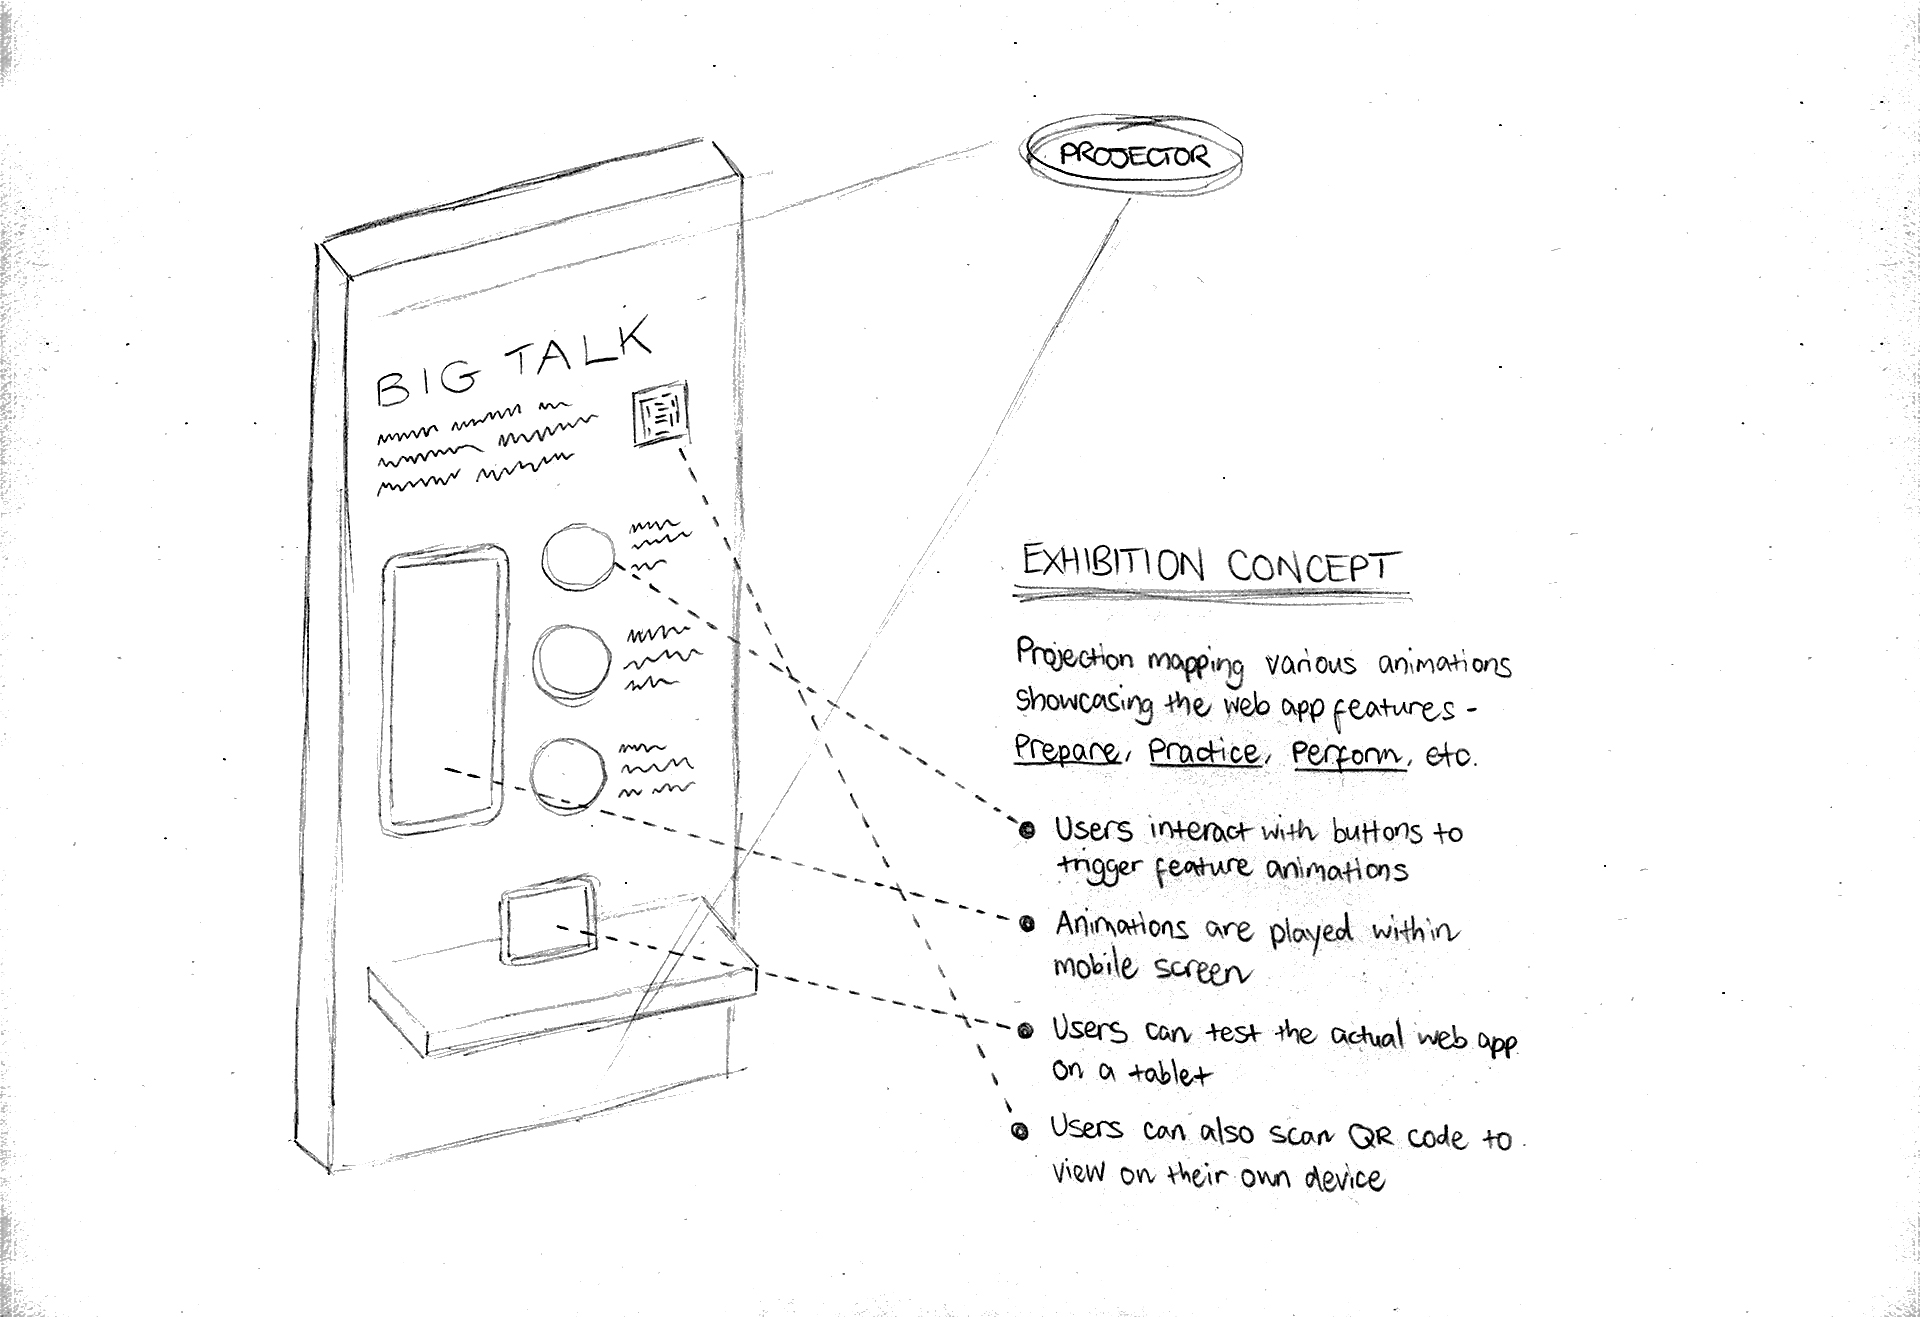 PROJECTOR
BIG TALK
EXHIBITION CONCEPT
Projection mapping various animations
showcasing the web app features -
Prepare, Practice, Perform, etc.
Users interact with buttons to
trigger feature animations
Animations are played within
mobile screen
Users can test the actual web app
on a tablet
Users can also scan QR code to
view on their own device